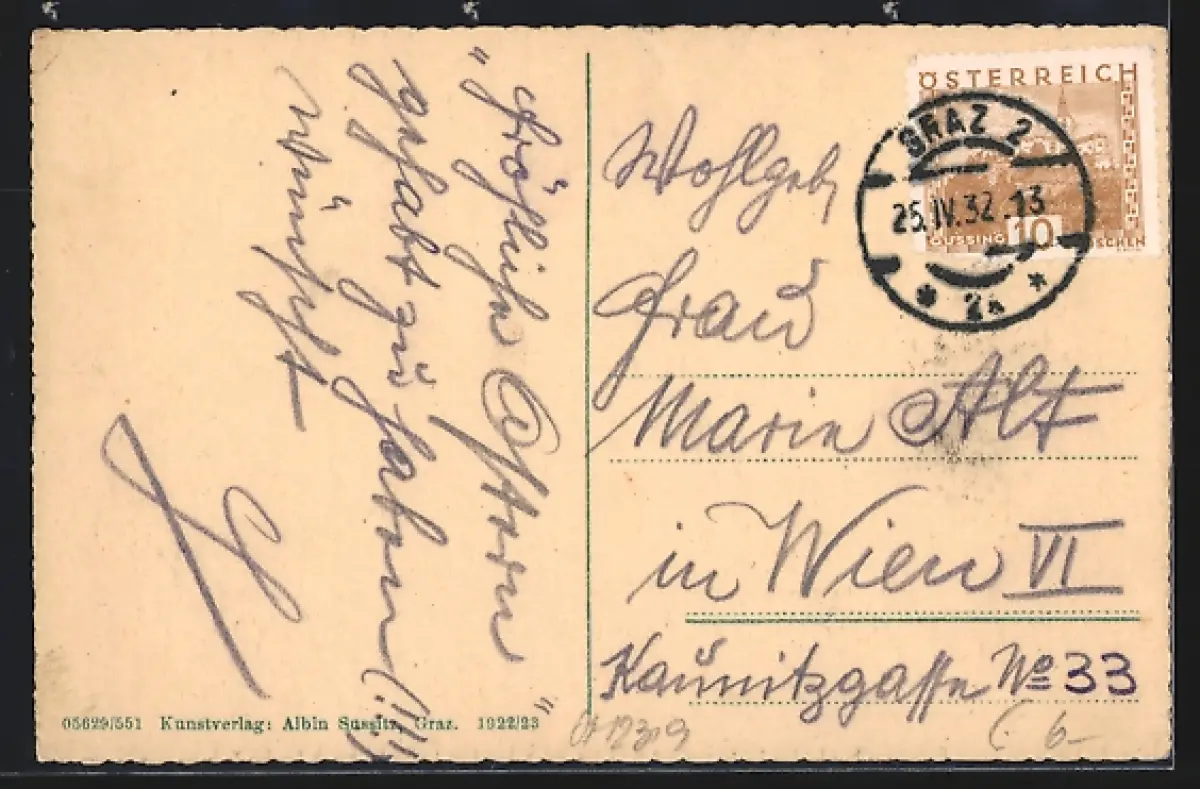 „Fröhliche Ostern“
gehabt zu haben (!!!)
wünscht
ÖSTERREICH
GÜSSING 10 GROSCHEN
GRAZ 2
25.IV.32.13
* 2a *
Wohlgeb.
Frau
Marie Alt
in Wien VI
Kaunitzgasse No 33
05629/551 Kunstverlag: Albin Sussitz, Graz. 1922/23
6-